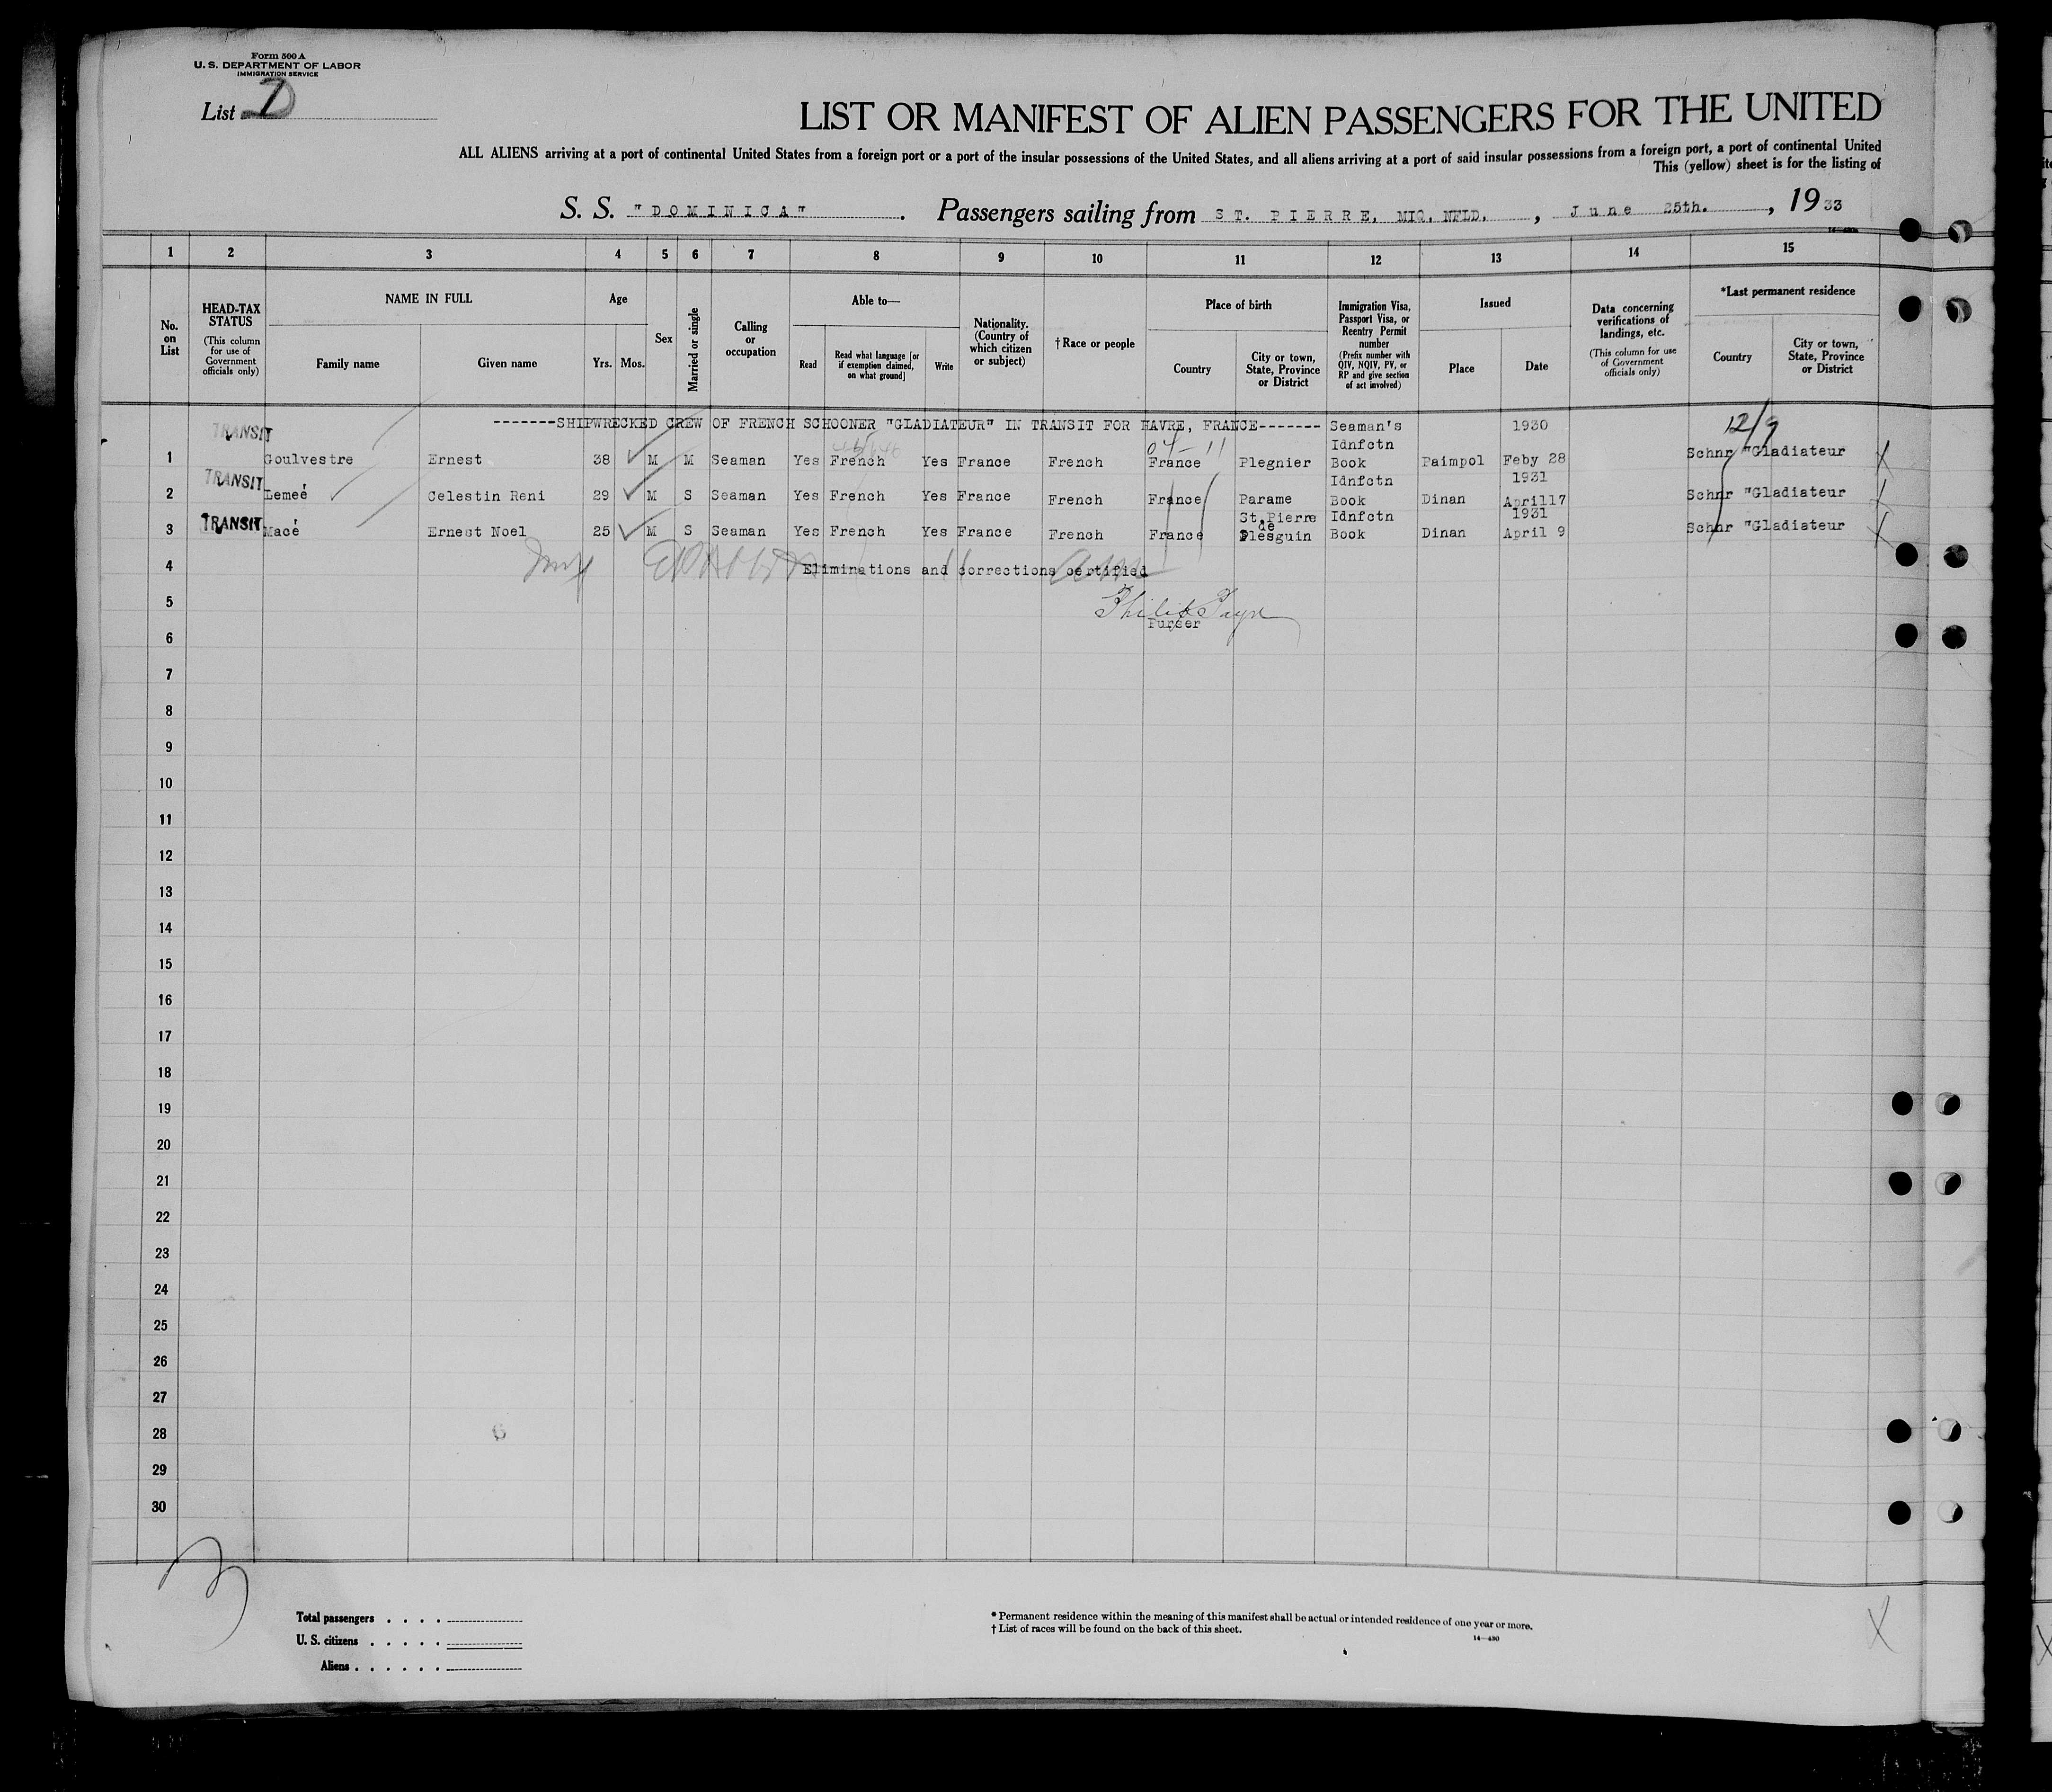 Form 500 A
U. S. DEPARTMENT OF LABOR
IMMIGRATION SERVICE
List D
LIST OR MANIFEST OF ALIEN PASSENGERS FOR THE UNITED
ALL ALIENS arriving at a port of continental United States from a foreign port or a port of the insular possessions of the United States, and all aliens arriving at a port of said insular possessions from a foreign port, a port of continental United
This (yellow) sheet is for the listing of
S. S. "DOMINICA" . Passengers sailing from ST. PIERRE, MIQ, NFLD. , June 25th. , 19 33
1 2 3 4 5 6 7 8 9 10 11 12 13 14 15
No. on List
HEAD-TAX STATUS (This column for use of Government officials only)
NAME IN FULL
Family name
Given name
Age
Yrs.
Mos.
Sex
Married or single
Calling or occupation
Able to—
Read
Read what language [or if exemption claimed, on what ground]
Write
Nationality. (Country of which citizen or subject)
†Race or people
Place of birth
Country
City or town, State, Province or District
Immigration Visa, Passport Visa, or Reentry Permit number (Prefix number with QIV, NQIV, PV, or RP and give section of act involved)
Issued
Place
Date
Data concerning verifications of landings, etc. (This column for use of Government officials only)
*Last permanent residence
Country
City or town, State, Province or District
-------SHIPWRECKED CREW OF FRENCH SCHOONER "GLADIATEUR" IN TRANSIT FOR HAVRE, FRANCE------- Seaman's 1930 12/9
TRANSIT 1 Goulvestre Ernest 38 M M Seaman Yes French Yes France French France Plegnier Idnfctn Book Paimpol Feby 28 Schnr "Gladiateur
TRANSIT 2 Lemeé Celestin Reni 29 M S Seaman Yes French Yes France French France Parame Idnfctn Book Dinan 1931 April17 Schnr "Gladiateur
TRANSIT 3 Macé Ernest Noel 25 M S Seaman Yes French Yes France French France St.Pierre de Plesguin Idnfctn Book Dinan 1931 April 9 Schnr "Gladiateur
4 Eliminations and corrections certified
5 Philip
6 Purser
7
8
9
10
11
12
13
14
15
16
17
18
19
20
21
22
23
24
25
26
27
28
29
30
3
Total passengers . . . .
U. S. citizens . . . . .
Aliens . . . . . .
* Permanent residence within the meaning of this manifest shall be actual or intended residence of one year or more.
† List of races will be found on the back of this sheet.
14—430